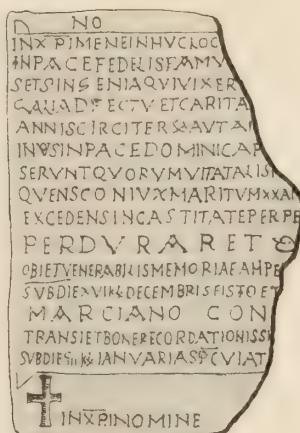 NO
IN XPI MENE IN HUC LOC
IN PACE FEDELIS FAMV
SET SINGENIA QVI VIXER
ANNIS CIRCITER AVTAI
IN PACE DOMINICA P
SERVNT QVORVM VITA TALIS
QVENS CONIVX MARITVM XXAI
EXCEDENS IN CASTITATE PERPE
PERDVRARET
OBIET VENERABILIS MEMORIAE
SVB DIE DECEMBRIS FISTO ET
MARCIANO CON
TRANSIET BONE RECORDATIONIS
IANVARIAS
IN XPI NOMINE